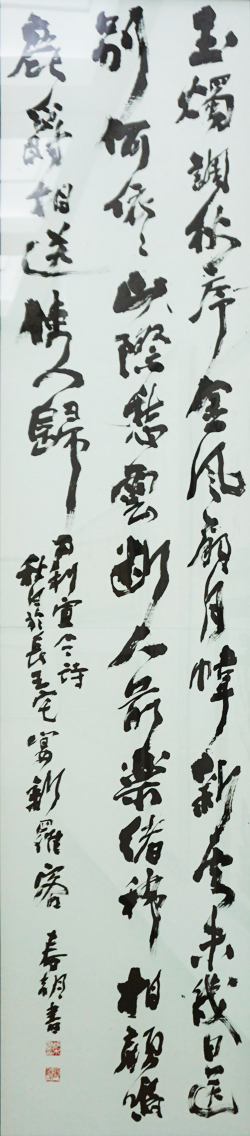 玉燭調秋序金風扇月幃新知未幾日送
別何依〻山際愁雲断人前樂緒稀相顧鳴
鹿爵相送使人歸
刀利宣令詩
秋日於長王宅宴新羅客 春
書